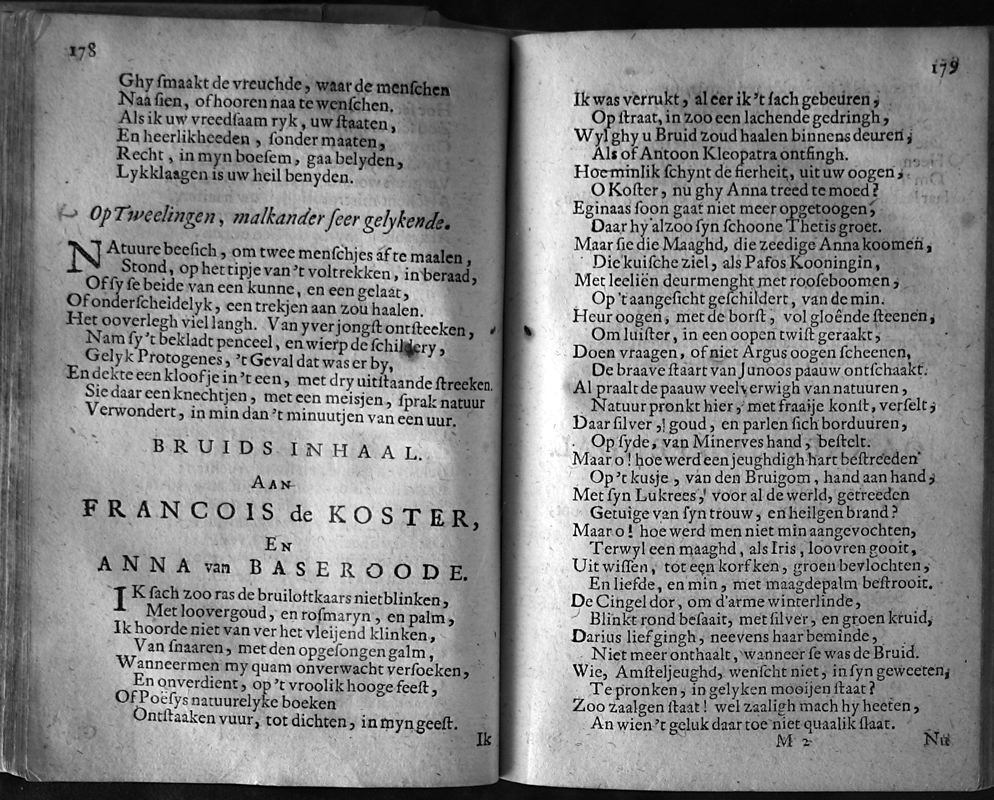 178
Ghy ſmaakt de vreuchde, waar de menſchen
Naa ſien, of hooren naa te wenſchen.
Als ik uw vreedſaam ryk, uw ſtaaten,
En heerlikheeden, ſonder maaten,
Recht, in myn boeſem, gaa belyden,
Lykklaagen is uw heil benyden.
Op Tweelingen, malkander ſeer gelykende.
NAtuure beeſich, om twee menſchjes af te maalen,
Stond, op het tipje van 't voltrekken, in beraad,
Of ſy ſe beide van een kunne, en een gelaat,
Of onderſcheidelyk, een trekjen aan zou haalen.
Het ooverlegh viel langh. Van yver jongſt ontſteeken,
Nam ſy 't bekladt penceel, en wierp de ſchildery,
Gelyk Protogenes, 't Geval dat was er by,
En dekte een kloofje in 't een, met dry uitſtaande ſtreeken.
Sie daar een knechtjen, met een meisjen, ſprak natuur
Verwondert, in min dan 't minuutjen van een uur.
BRUIDS INHAAL.
AAN
FRANCOIS de KOSTER,
EN
ANNA van BASEROODE.
IK ſach zoo ras de bruiloftkaars niet blinken,
Met loovergoud, en roſmaryn, en palm,
Ik hoorde niet van ver het vleijend klinken,
Van ſnaaren, met den opgeſongen galm,
Wanneermen my quam onverwacht verſoeken,
En onverdient, op 't vroolik hooge feeſt,
Of Poëſys natuurelyke boeken
Ontſtaaken vuur, tot dichten, in myn geeſt.
Ik
179
Ik was verrukt, al eer ik 't ſach gebeuren,
Op ſtraat, in zoo een lachende gedringh,
Wyl ghy u Bruid zoud haalen binnens deuren,
Als of Antoon Kleopatra ontfingh.
Hoe minlik ſchynt de fierheit, uit uw oogen,
O Koſter, nu ghy Anna treed te moed?
Eginaas ſoon gaat niet meer opgetoogen,
Daar hy alzoo ſyn ſchoone Thetis groet.
Maar ſie die Maaghd, die zeedige Anna koomen,
Die kuiſche ziel, als Pafos Kooningin,
Met leeliën deurmenght met rooſeboomen,
Op 't aangeſicht geſchildert, van de min.
Heur oogen, met de borſt, vol gloênde ſteenen,
Om luiſter, in een oopen twiſt geraakt,
Doen vraagen, of niet Argus oogen ſcheenen,
De braave ſtaart van Junoos paauw ontſchaakt.
Al praalt de paauw veelverwigh van natuuren,
Natuur pronkt hier, met fraaije konſt, verſelt,
Daar ſilver, goud, en parlen ſich borduuren,
Op ſyde, van Minerves hand, beſtelt.
Maar o! hoe werd een jeughdigh hart beſtreeden
Op 't kusje, van den Bruigom, hand aan hand,
Met ſyn Lukrees, voor al de werld, getreeden
Getuige van ſyn trouw, en heilgen brand?
Maar o! hoe werd men niet min aangevochten,
Terwyl een maaghd, als Iris, loovren gooit,
Uit wiſſen, tot een korf ken, groen bevlochten,
En liefde, en min, met maagdepalm beſtrooit.
De Cingel dor, om d'arme winterlinde,
Blinkt rond beſaait, met ſilver, en groen kruid,
Darius lief gingh, neevens haar beminde,
Niet meer onthaalt, wanneer ſe was de Bruid.
Wie, Amſteljeughd, wenſcht niet, in ſyn geweeten,
Te pronken, in gelyken mooijen ſtaat?
Zoo zaalgen ſtaat! wel zaaligh mach hy heeten,
An wien 't geluk daar toe niet quaalik ſlaat.
M 2
Nu